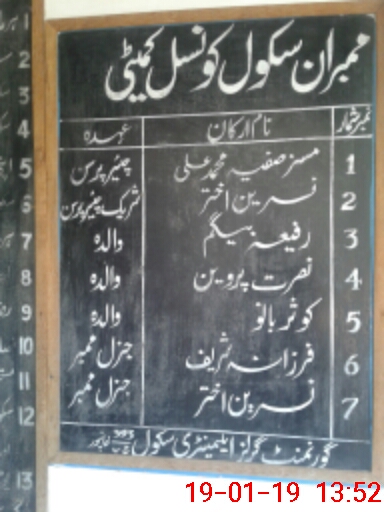 ممبران سکول کونسل کمیٹی
نمبر شمار نام ارکان عہدہ
1 مسز صفیہ محمد علی چئیرپرسن
2 نسرین اختر شریک چئیرپرسن
3 رفیعہ بیگم والدہ
4 نصرت پروین والدہ
5 کوثر بانو والدہ
6 فرزانہ شریف جنرل ممبر
7 نسرین اختر جنرل ممبر
گورنمنٹ گرلز ایلیمنٹری سکول
1
2
3
4
5
6
7
8
9
10
11
12
13
19-01-19 13:52